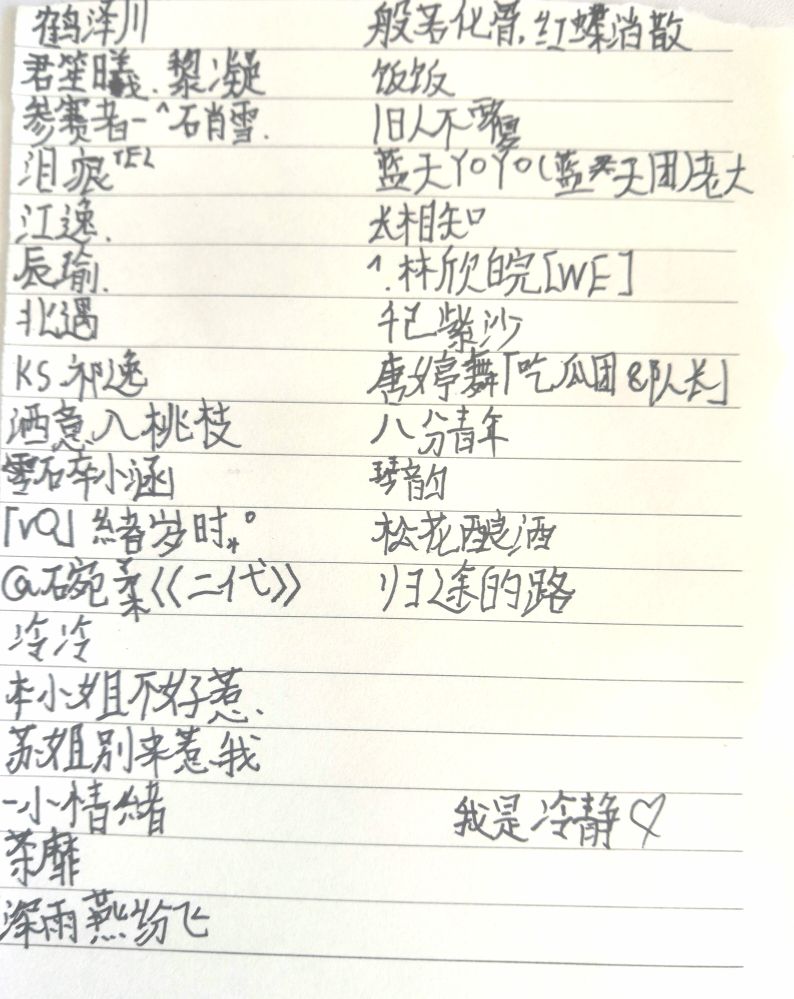 鹤泽川
君笙曦.黎凝
参赛者-^石肖雪.
泪痕TEL
江逸.
辰瑜.
北遇
KS.祁逸
洒意入桃枝
雪石卒小涵
「VQ」緒岁时.*°
@碗柔《《二代》》
冷冷
李小姐不好惹.
苏姐别来惹我
-小情緒
荼靡
深雨燕纷飞
般若化骨,红蝶消散
饭饭
旧人不覆
蓝天YOYO(蓝天团)老大
长相知
^.林欣皖[WE]
千己紫沙
唐婷舞「吃瓜团&队长」
八分青年
琴韵
松花酿酒
归途的路
我是冷静♡